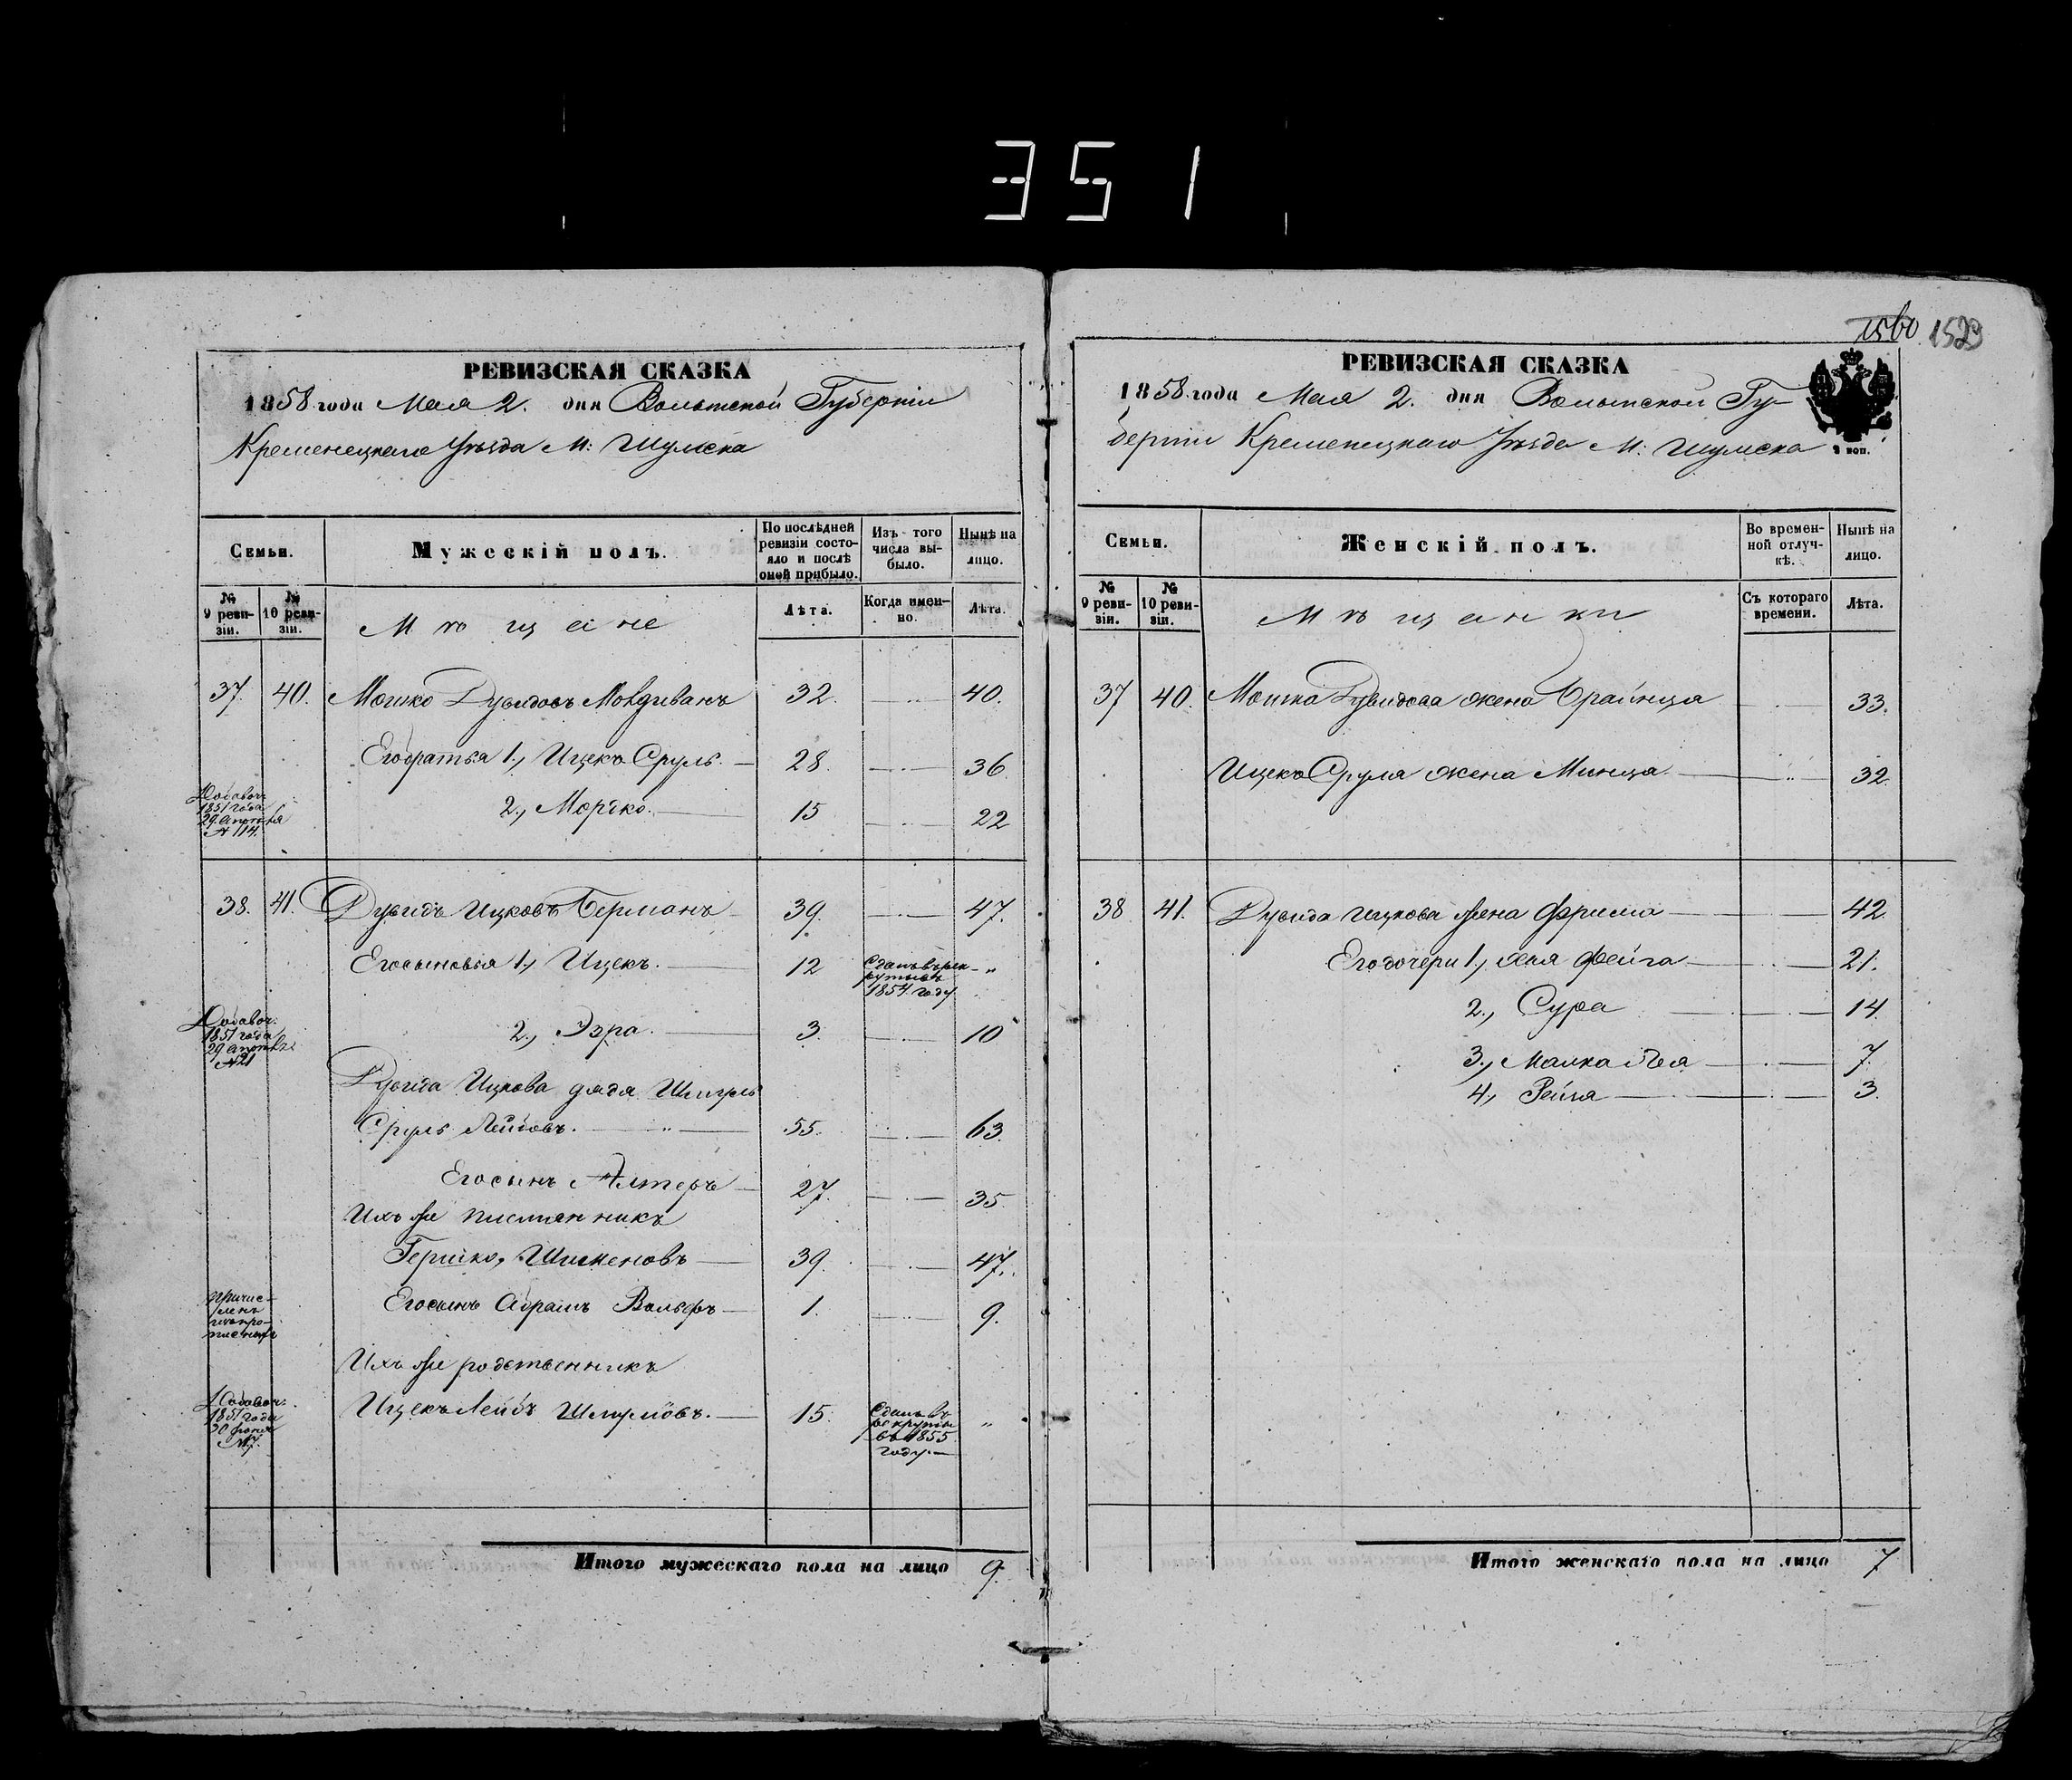 351
1560 1529
РЕВИЗСКАЯ СКАЗКА
1858 года Мая 2. дня Волынской Губерніи
Кременецкаго Уѣзда М: Шумска
Семьи.
Мужескій полъ.
По послѣдней ревизіи состояло и послѣ оной прибыло.
Изъ того числа выбыло.
Нынѣ на лицо.
№ 9 ревизіи.
№ 10 ревизіи.
Мѣщане
Лѣта.
Когда именно.
Лѣта.
37. 40. Мошко Дувидовъ Мовдиванъ 32. 40.
Его братья 1., Ицко Сруль. 28. 36.
Добавоч. 1851 года 29. № 114.
2., Мортко. 15 22
38. 41. Дувидъ Ицковъ Берманъ 39. 47.
Его сыновья 1., Ицекъ. 12 Сданъ въ рекруты въ 1854 году "
Добавоч. 1851 года 29 №21
2., Эзра. 3. 10
Дувида Ицкова дядя Шмуль
Сруль Лейбовъ. 55. 63.
Его сынъ Алтеръ 27. 35.
Ихъ же племянникъ
Гершко Шименовъ 39. 47.
Причисленъ изъ прописныхъ
Его сынъ Абрамъ Вольфъ 1. 9.
Ихъ же родственникъ
Добавоч. 1851 года 30 №7.
Ицекъ Лейбъ Шмулiовъ. 15. Сданъ въ рекруты въ 1855 году. "
Итого мужескаго пола на лицо 9.
РЕВИЗСКАЯ СКАЗКА
1858 года Мая 2. дня Волынской Гу-
берніи Кременецкаго Уѣзда М: Шумска
коп.
Семьи.
Женскій полъ.
Во временной отлучкѣ.
Нынѣ на лицо.
№ 9 ревизіи.
№ 10 ревизіи.
Мѣщанки
Съ котораго времени.
Лѣта.
37 40. Мошка Дувидова жена Брайнца 33.
Ицко Сруля жена Минца 32.
38 41. Дувида Ицкова жена Фрима 42.
Его дочери 1., Хая Фейга 21.
2., Сура 14.
3., Малка Лея 7.
4., Рейзя 3.
Итого женскаго пола на лицо 7